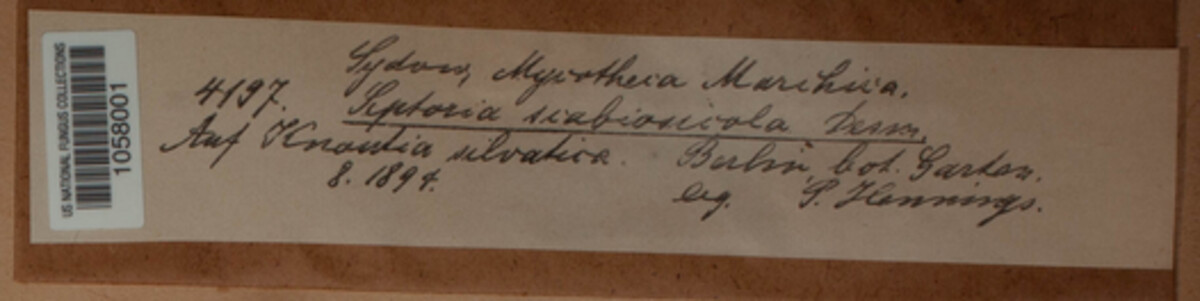 US NATIONAL FUNGUS COLLECTIONS
1058001
Sydow, Mycotheca Marchica.
4197. Septoria scabiosicola Desm.
Auf Knautia silvatica. Berlin, bot. Garten.
8. 1894. leg. P. Hennings.